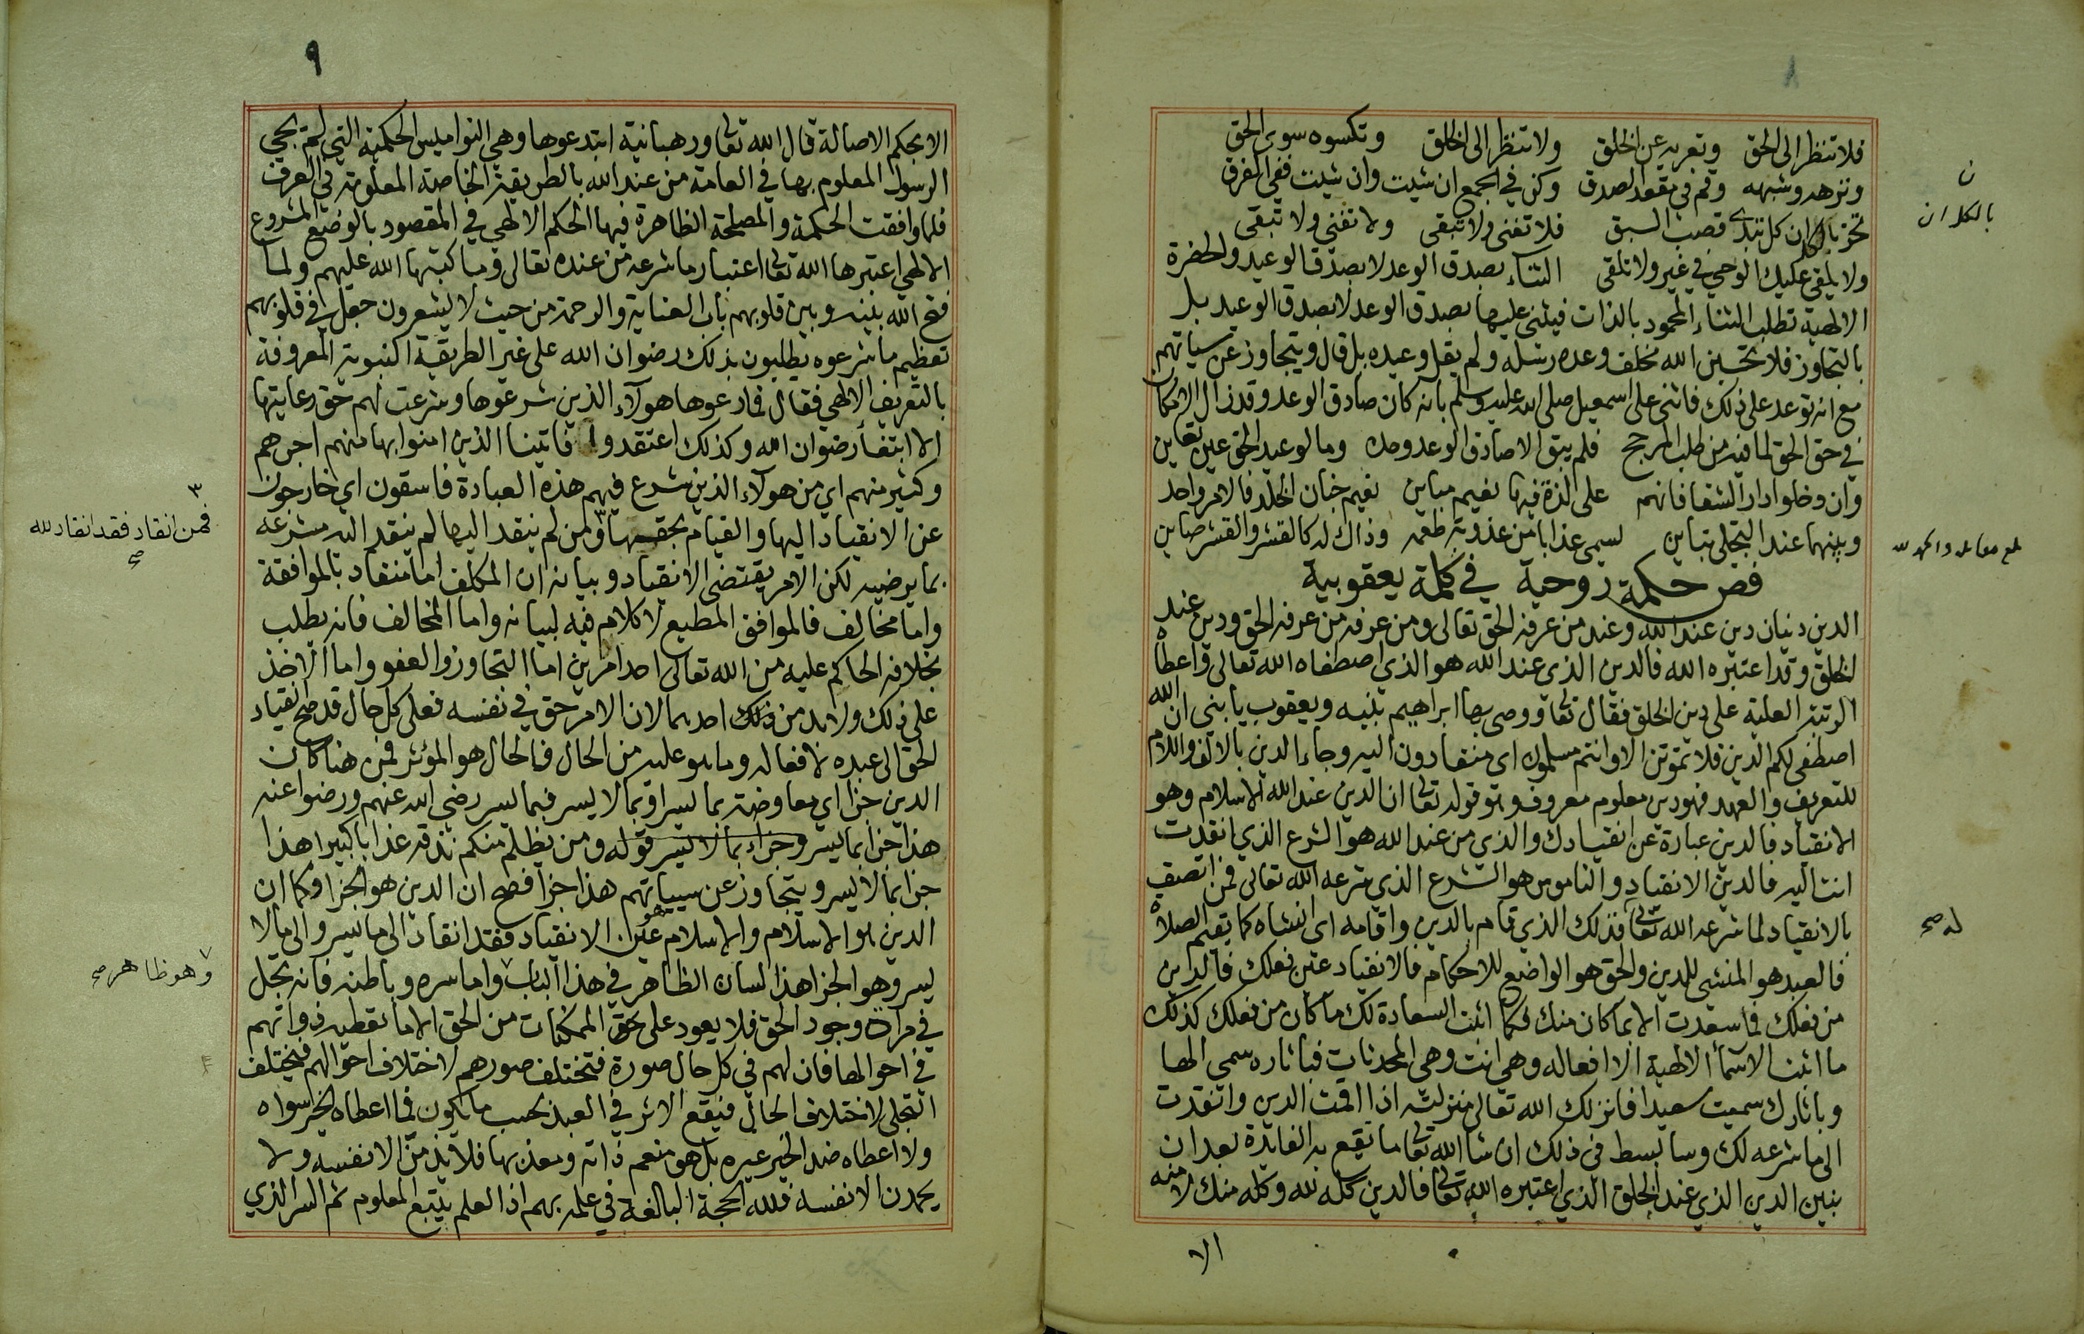 ٨
فلا تنظر الى الحق وتعريه عن الخلق ولا تنظر الى الخلق وتكسوه سوى الحق
ونزهه وشبهه وقم في مقعد الصدق وكن في الجمع ان شيت وان شيت ففي الفرق
تحز بالكل ان كل تبدى قصب السبق فلا تفنى ولا تبقى ولا تفني ولا تبقي
ولا يلقى عليك الوحي في غير ولا تلقي الثناء بصدق الوعد لا بصدق الوعيد والحضرة
الالهية تطلب الثناء المحمود بالذات فيثنى عليها بصدق الوعد لا بصدق الوعيد بل
بالتجاوز فلا تحسبن الله مخلف وعده رسله ولم يقل وعيده بل قال ويتجاوز عن سياتهم
مع انه توعد على ذلك فاثنى على اسمعيل صلى الله عليه وسلم بانه كان صادق الوعد وقد زال الامكان
في حق الحق لما فيه من طلب المرجح فلم يبق الا صادق الوعد وحده وما لوعيد الحق عين تعاين
وان دخلوا دار الشقا فانهم على لذة فيها نعيم مباين نعيم جنان الخلد فالامر واحد
وبينهما عند التجلي تباين يسمى عذابا من عذوبة طعمه وذاك له كالقشر والقشر صاين
فص حكمة روحية في كلمة يعقوبية
الدين دينان دين عند الله وعند من عرفه الحق تعالى ومن عرفه من عرفه الحق ودين عند
الخلق وقد اعتبره الله فالدين الذي عند الله هو الذي اصطفاه الله تعالى واعطاه
الرتبة العلية على دين الخلق فقال تعالى ووصى بها ابراهيم بنيه ويعقوب يا بني ان الله
اصطفى لكم الدين فلا تموتن الا وانتم مسلمون اي منقادون اليه وجاء الدين بالالف واللام
للتعريف والعهد فهو دين معلوم معروف وهو قوله تعالى ان الدين عند الله الاسلام وهو
الانقياد فالدين عبارة عن انقيادك والذي من عند الله هو الشرع الذي انقدت
انت اليه فالدين الانقياد والناموس هو الشرع الذي شرعه الله تعالى فمن اتصف
بالانقياد لما شرعه الله تعالى فذلك الذي قام بالدين واقامه اي انشاه كما يقيم الصلاة
فالعبد هو المنشي للدين والحق هو الواضع للاحكام فالانقياد عين فعلك فالدين
من فعلك فما سعدت الا بما كان منك فكما اثبت السعادة لك ما كان من فعلك كذلك
ما اثبت الاسما الالهية الا افعاله وهي انت وهي المحدثات فباثاره سمي الها
وباثارك سميت سعيدا فانزلك الله تعالى منزلته اذا اقمت الدين وانقدت
الى ما شرعه لك وسابسط في ذلك ان شا الله تعالى ما تقع به الفايدة بعد ان
نبين الدين الذي عند الخلق الذي اعتبره الله تعالى فالدين كله لله وكله منك لا منه
الا
ن
بالكل ان
له صح
٩
الا بحكم الاصالة قال الله تعالى ورهبانية ابتدعوها وهي النواميس الحكمية التي لم يجي
الرسول المعلوم بها في العامة من عند الله بالطريقة الخاصة المعلومة في العرف
فلما وافقت الحكمة والمصلحة الظاهرة فيها الحكم الالهي في المقصود بالوضع المشروع
الالهي اعتبرها الله تعالى اعتبار ما شرعه من عنده تعالى وما كتبها الله عليهم ولما
فتح الله بينه وبين قلوبهم باب العناية والرحمة من حيث لا يشعرون جعل في قلوبهم
تعظيم ما شرعوه يطلبون بذلك رضوان الله على غير الطريقة النبوية المعروفة
بالتعريف الالهي فقال فما رعوها هولآء الذين شرعوها وشرعت لهم حق رعايتها
الا ابتغاء رضوان الله وكذلك اعتقدوا فاتينا الذين امنوا بها منهم اجرهم
وكثير منهم اي من هولآء الذين شرع فيهم هذه العبادة فاسقون اي خارجون
عن الانقياد اليها والقيام بحقها ومن لم ينقد اليها لم ينقد اليه مشرعه
بما يرضيه لكن الامر يقتضى الانقياد وبيانه ان المكلف اما منقاد بالموافقة
واما مخالف فالموافق المطيع لا كلام فيه لبيانه واما المخالف فانه يطلب
بخلافه الحاكم عليه من الله تعالى احد امرين اما التجاوز والعفو واما الاخذ
على ذلك ولا بد من احدهما لان الامر حق في نفسه فعلى كل حال قد صح انقياد
الحق الى عبده لافعاله وما هو عليه من الحال فالحال هو المؤثر فمن هنا كان
الدين جزا اي معاوضة بما يسر او بما لا يسر فبما يسر رضي الله عنهم ورضوا عنه
هذا جزا بما يسر وجزاء بما لا يسر قوله ومن يظلم منكم نذقه عذابا كبيرا هذا
جزا بما لا يسر ويتجاوز عن سيياتهم هذا جزا فصح ان الدين هو الجزا وكما ان
الدين هو الاسلام والاسلام هو عين الانقياد فقد انقاد الى ما يسر والى ما لا
يسر وهو الجزا هذا لسان الظاهر في هذا الباب واما سره وباطنه فانه تجل
في مرآة وجود الحق فلا يعود على الممكنات من الحق الا ما تعطيه ذواتهم
في احوالها فان لهم في كل حال صورة فتختلف صورهم لاختلاف احوالهم فيختلف
التجلي لاختلاف الحال فيقع الاثر في العبد بحسب ما يكون فما اعطاه الخير سواه
ولا اعطاه ضد الخير غيره بل هو منعم ذاته ومعذبها فلا يذمن الا نفسه ولا
يحمدن الا نفسه فلله الحجة البالغة في علمه بهم اذ العلم يتبع المعلوم ثم السر الذي
٣
فمن انقاد فقد انقاد لله
صح
٧
وهو ظاهر صح